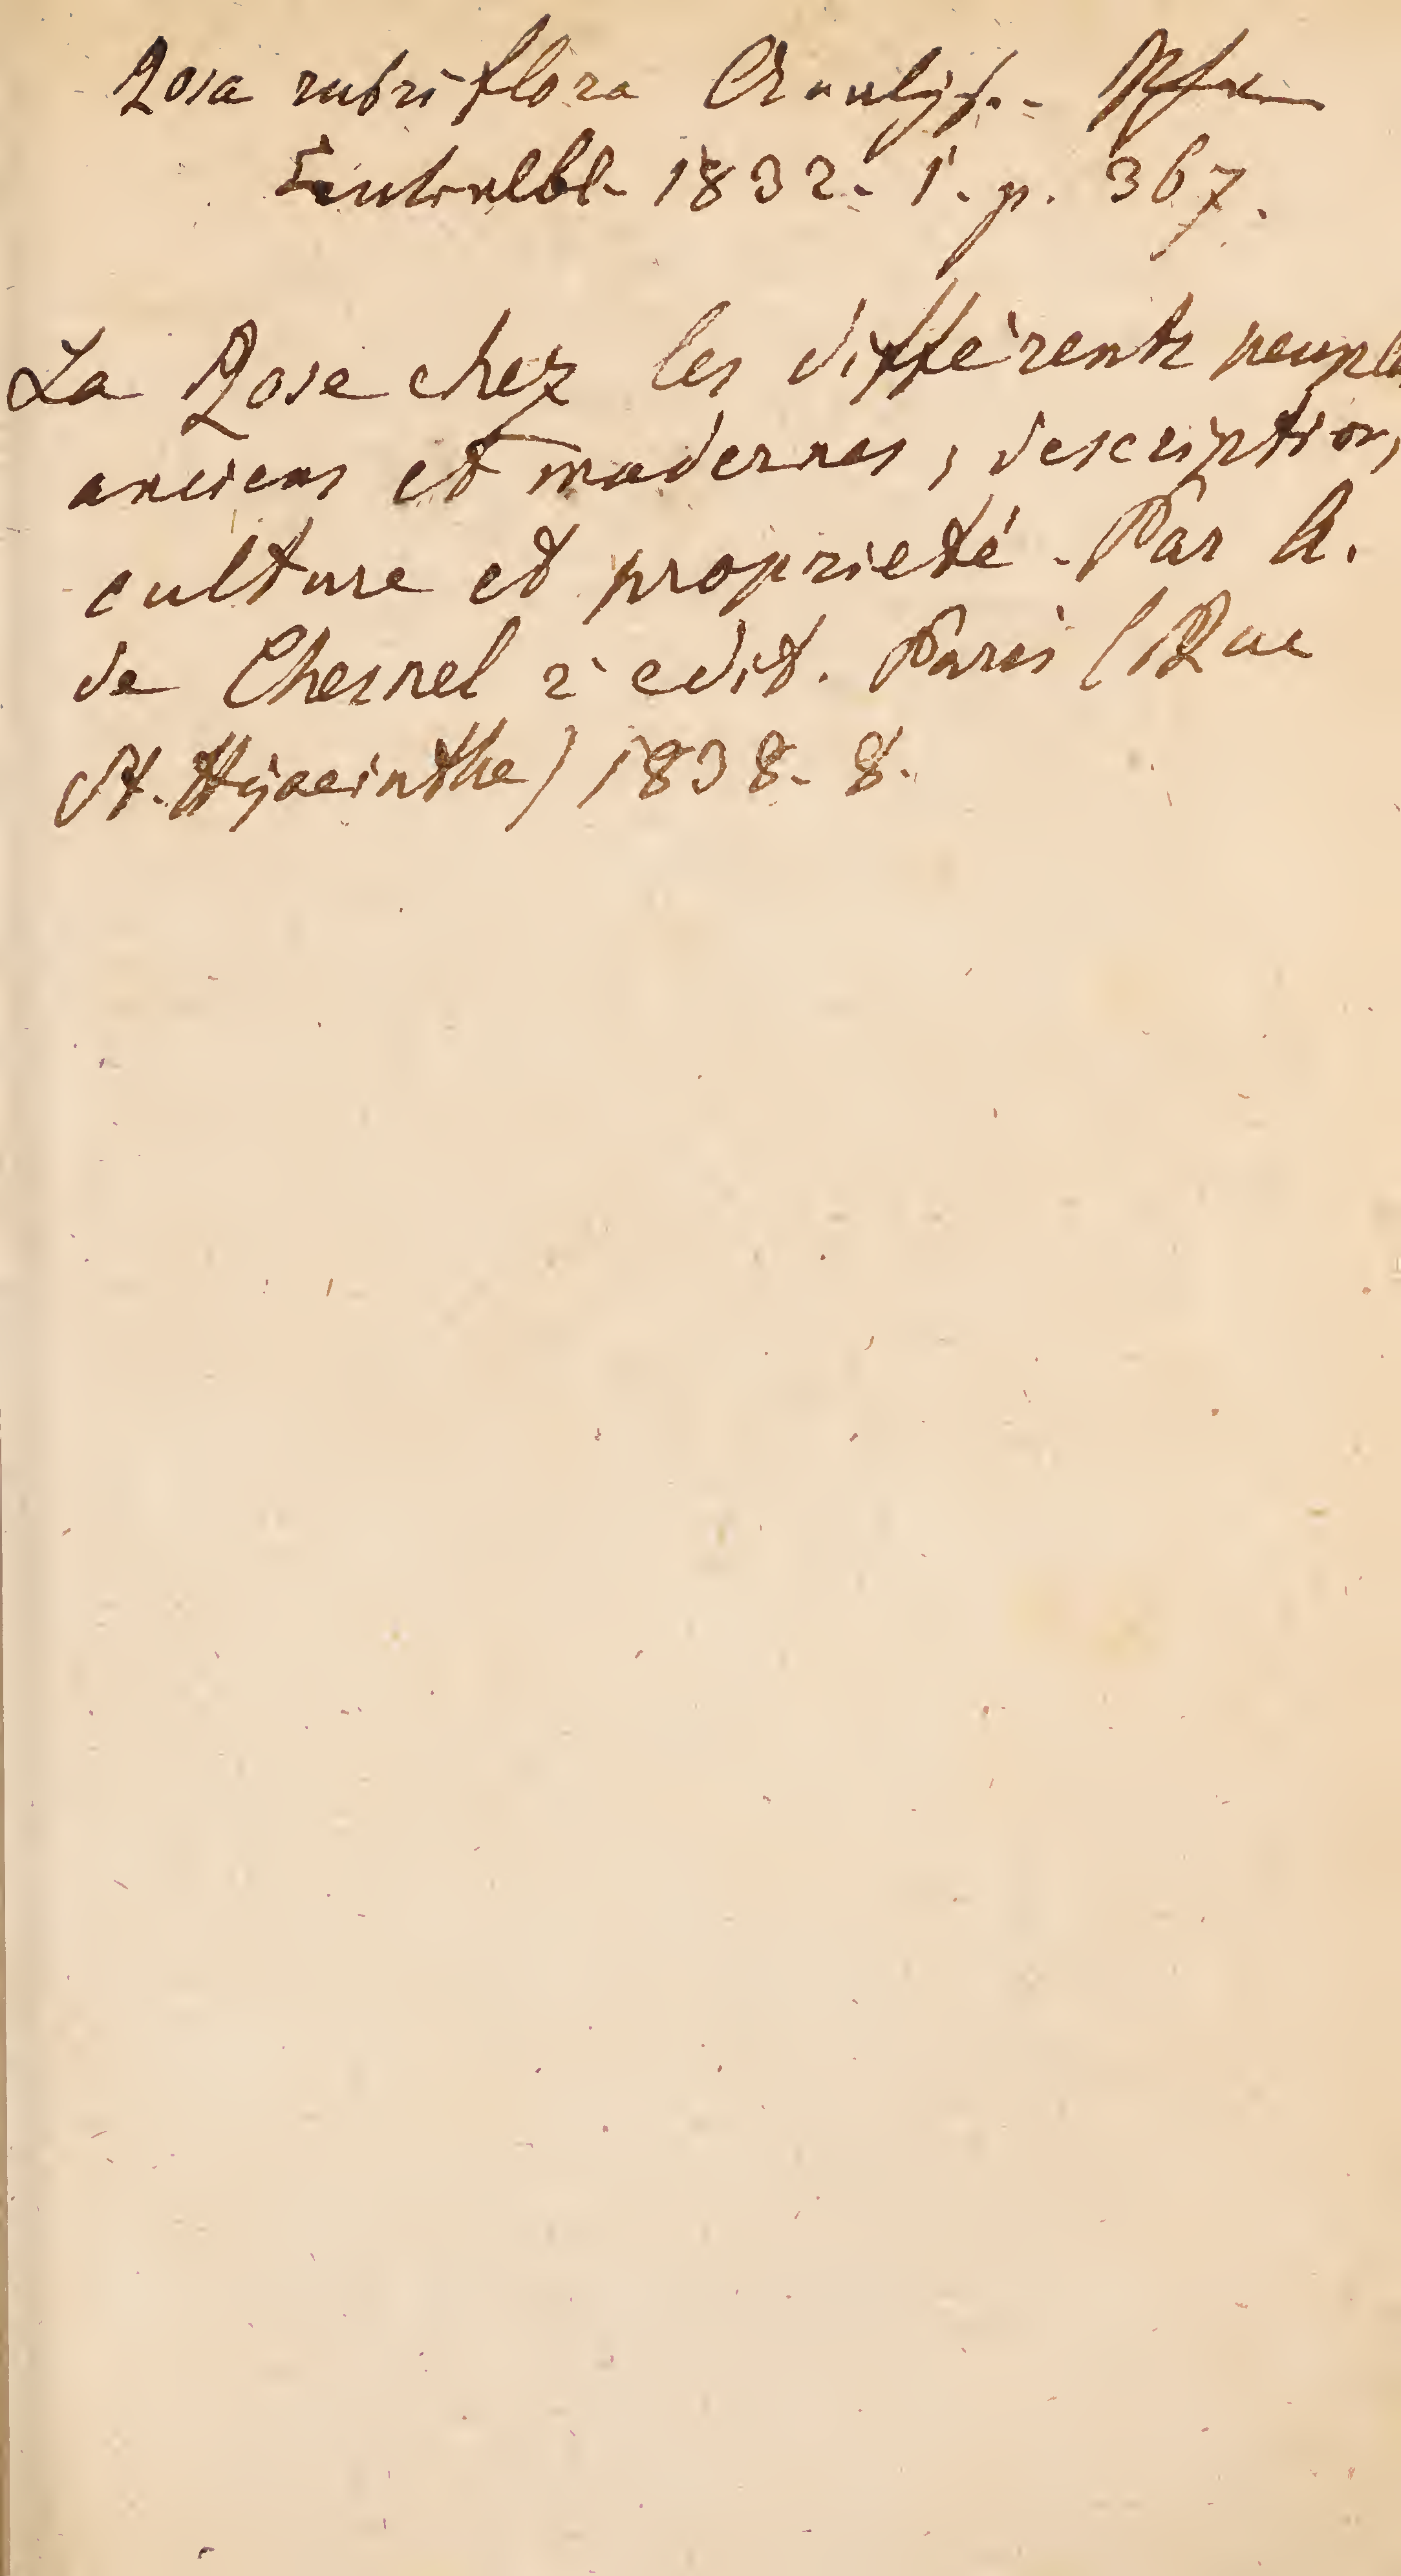 Rosa rubri flora Analyse. Pharm
Centralbl. 1832. 1. p. 367.
La Rose chez les differents peuples
anciens et modernes, description,
culture et proprieté. Par A.
de Chesnel 2 edit. Paris (Rue
St. Hyacinthe) 1838. 8.